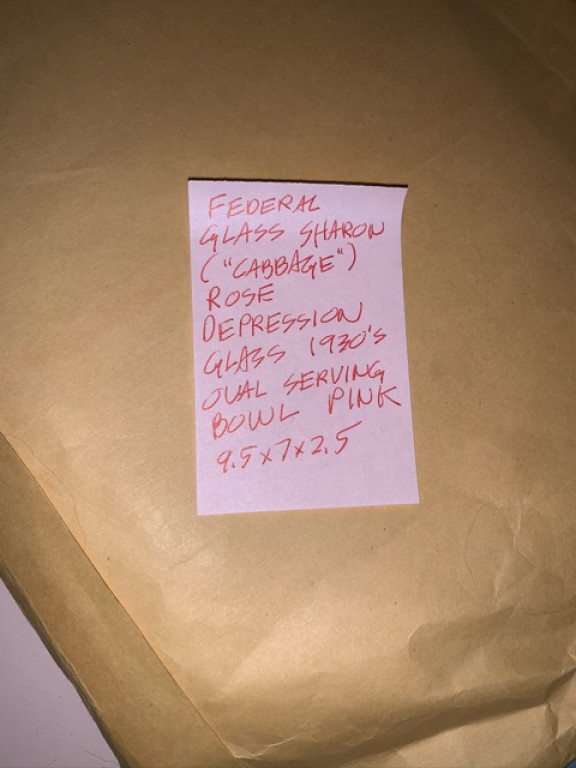 FEDERAL
GLASS SHARON
("CABBAGE")
ROSE
DEPRESSION
GLASS 1930's
OVAL SERVING
BOWL PINK
9.5 x 7 x 2.5